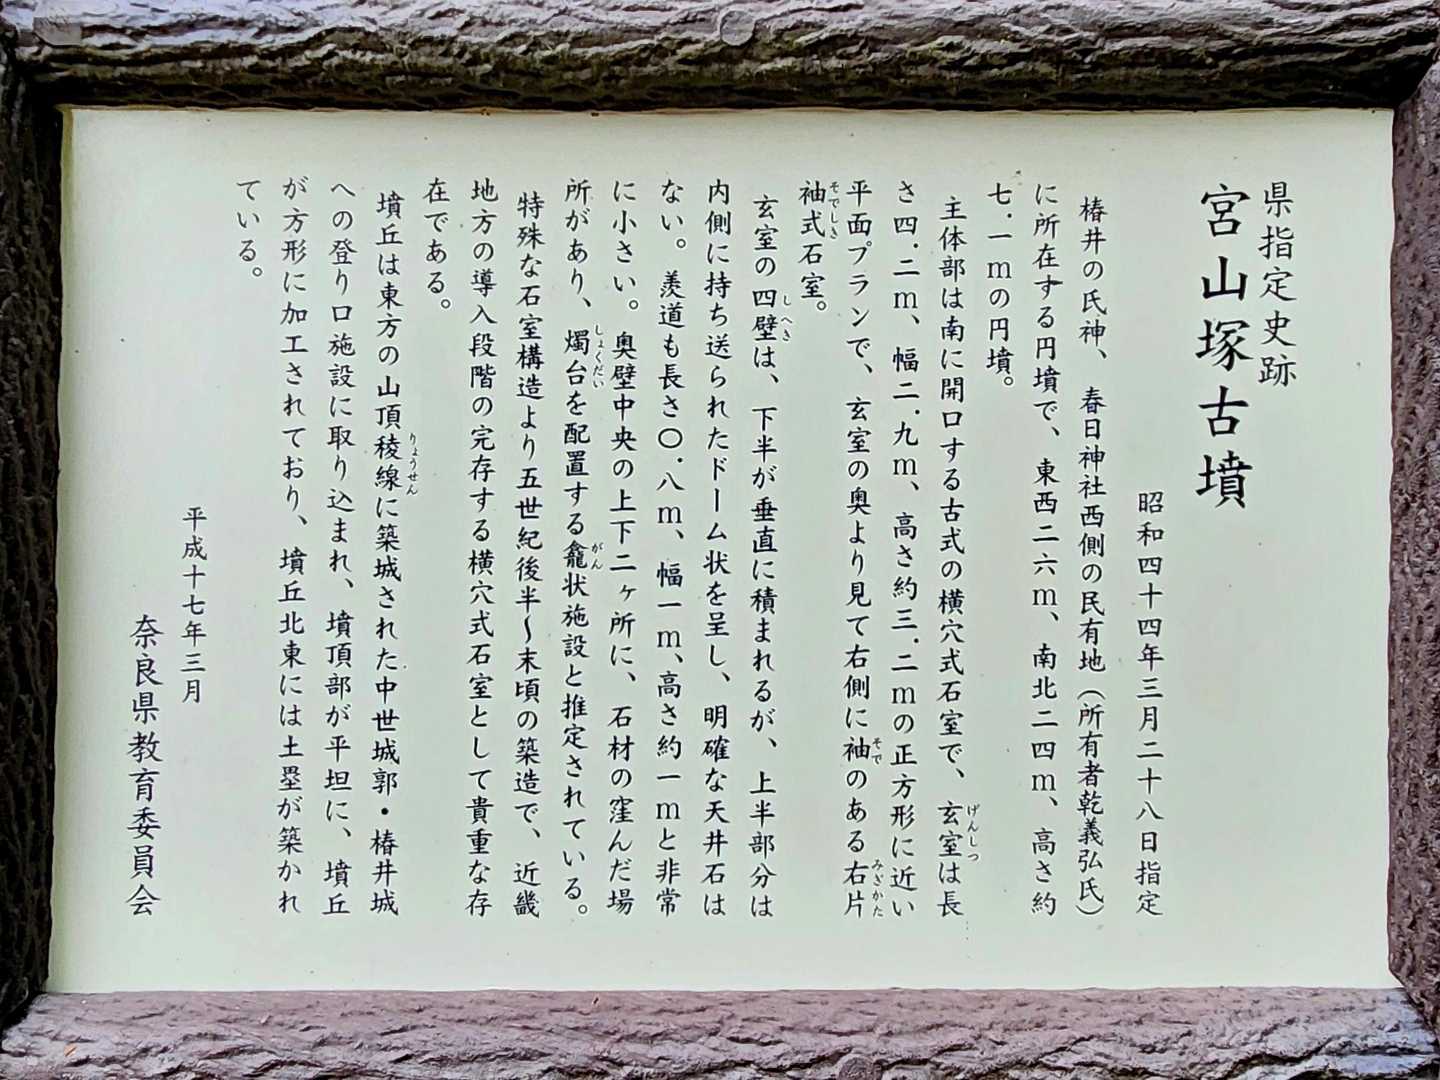 県指定史跡
宮山塚古墳
昭和四十四年三月二十八日指定
椿井の氏神、春日神社西側の民有地（所有者乾義弘氏）
に所在する円墳で、東西二六ｍ、南北二四ｍ、高さ約
七．一ｍの円墳。
主体部は南に開口する古式の横穴式石室で、玄室は長
さ四．二ｍ、幅二．九ｍ、高さ約三．二ｍの正方形に近い
平面プランで、玄室の奥より見て右側に袖のある右片
袖式石室。
玄室の四壁は、下半が垂直に積まれるが、上半部分は
内側に持ち送られたドーム状を呈し、明確な天井石は
ない。羨道も長さ〇．八ｍ、幅一ｍ、高さ約一ｍと非常
に小さい。奥壁中央の上下二ヶ所に、石材の窪んだ場
所があり、燭台を配置する龕状施設と推定されている。
特殊な石室構造より五世紀後半～末頃の築造で、近畿
地方の導入段階の完存する横穴式石室として貴重な存
在である。
墳丘は東方の山頂稜線に築城された中世城郭・椿井城
への登り口施設に取り込まれ、墳頂部が平坦に、墳丘
が方形に加工されており、墳丘北東には土塁が築かれ
ている。
平成十七年三月
奈良県教育委員会